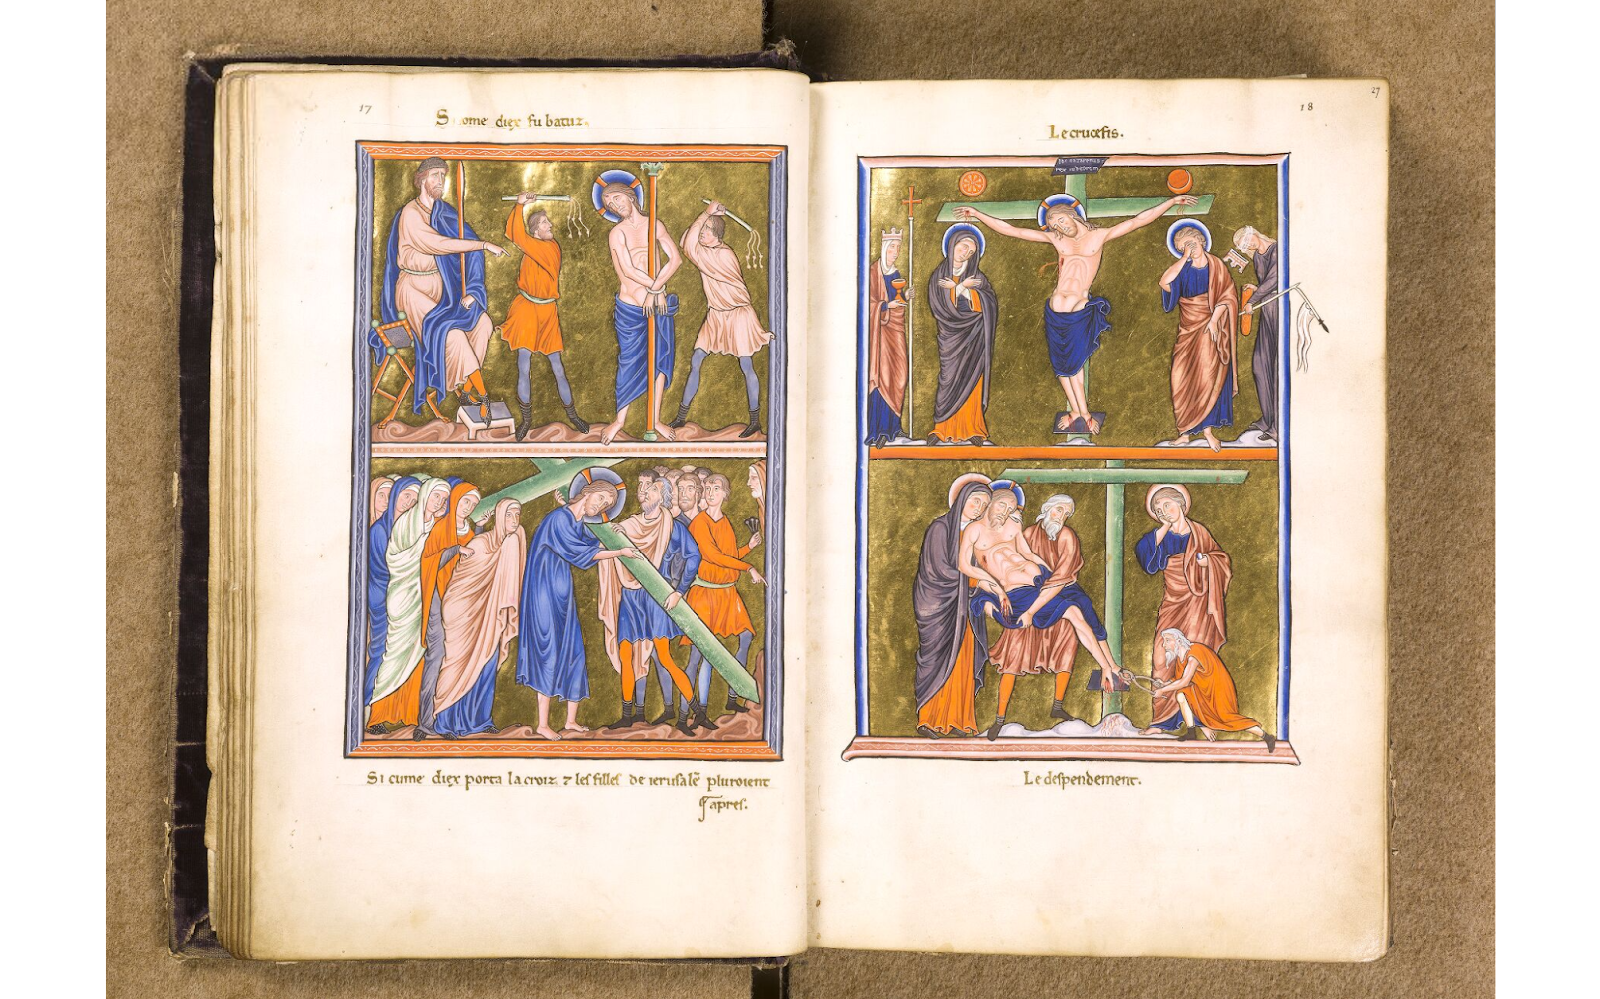 17
Si come diex fu batuz.
Si cume diex porta la croiz. ⁊ les filles de ierusalē pluroient
apres.
27
18
Le crucefis.
Le despendement.